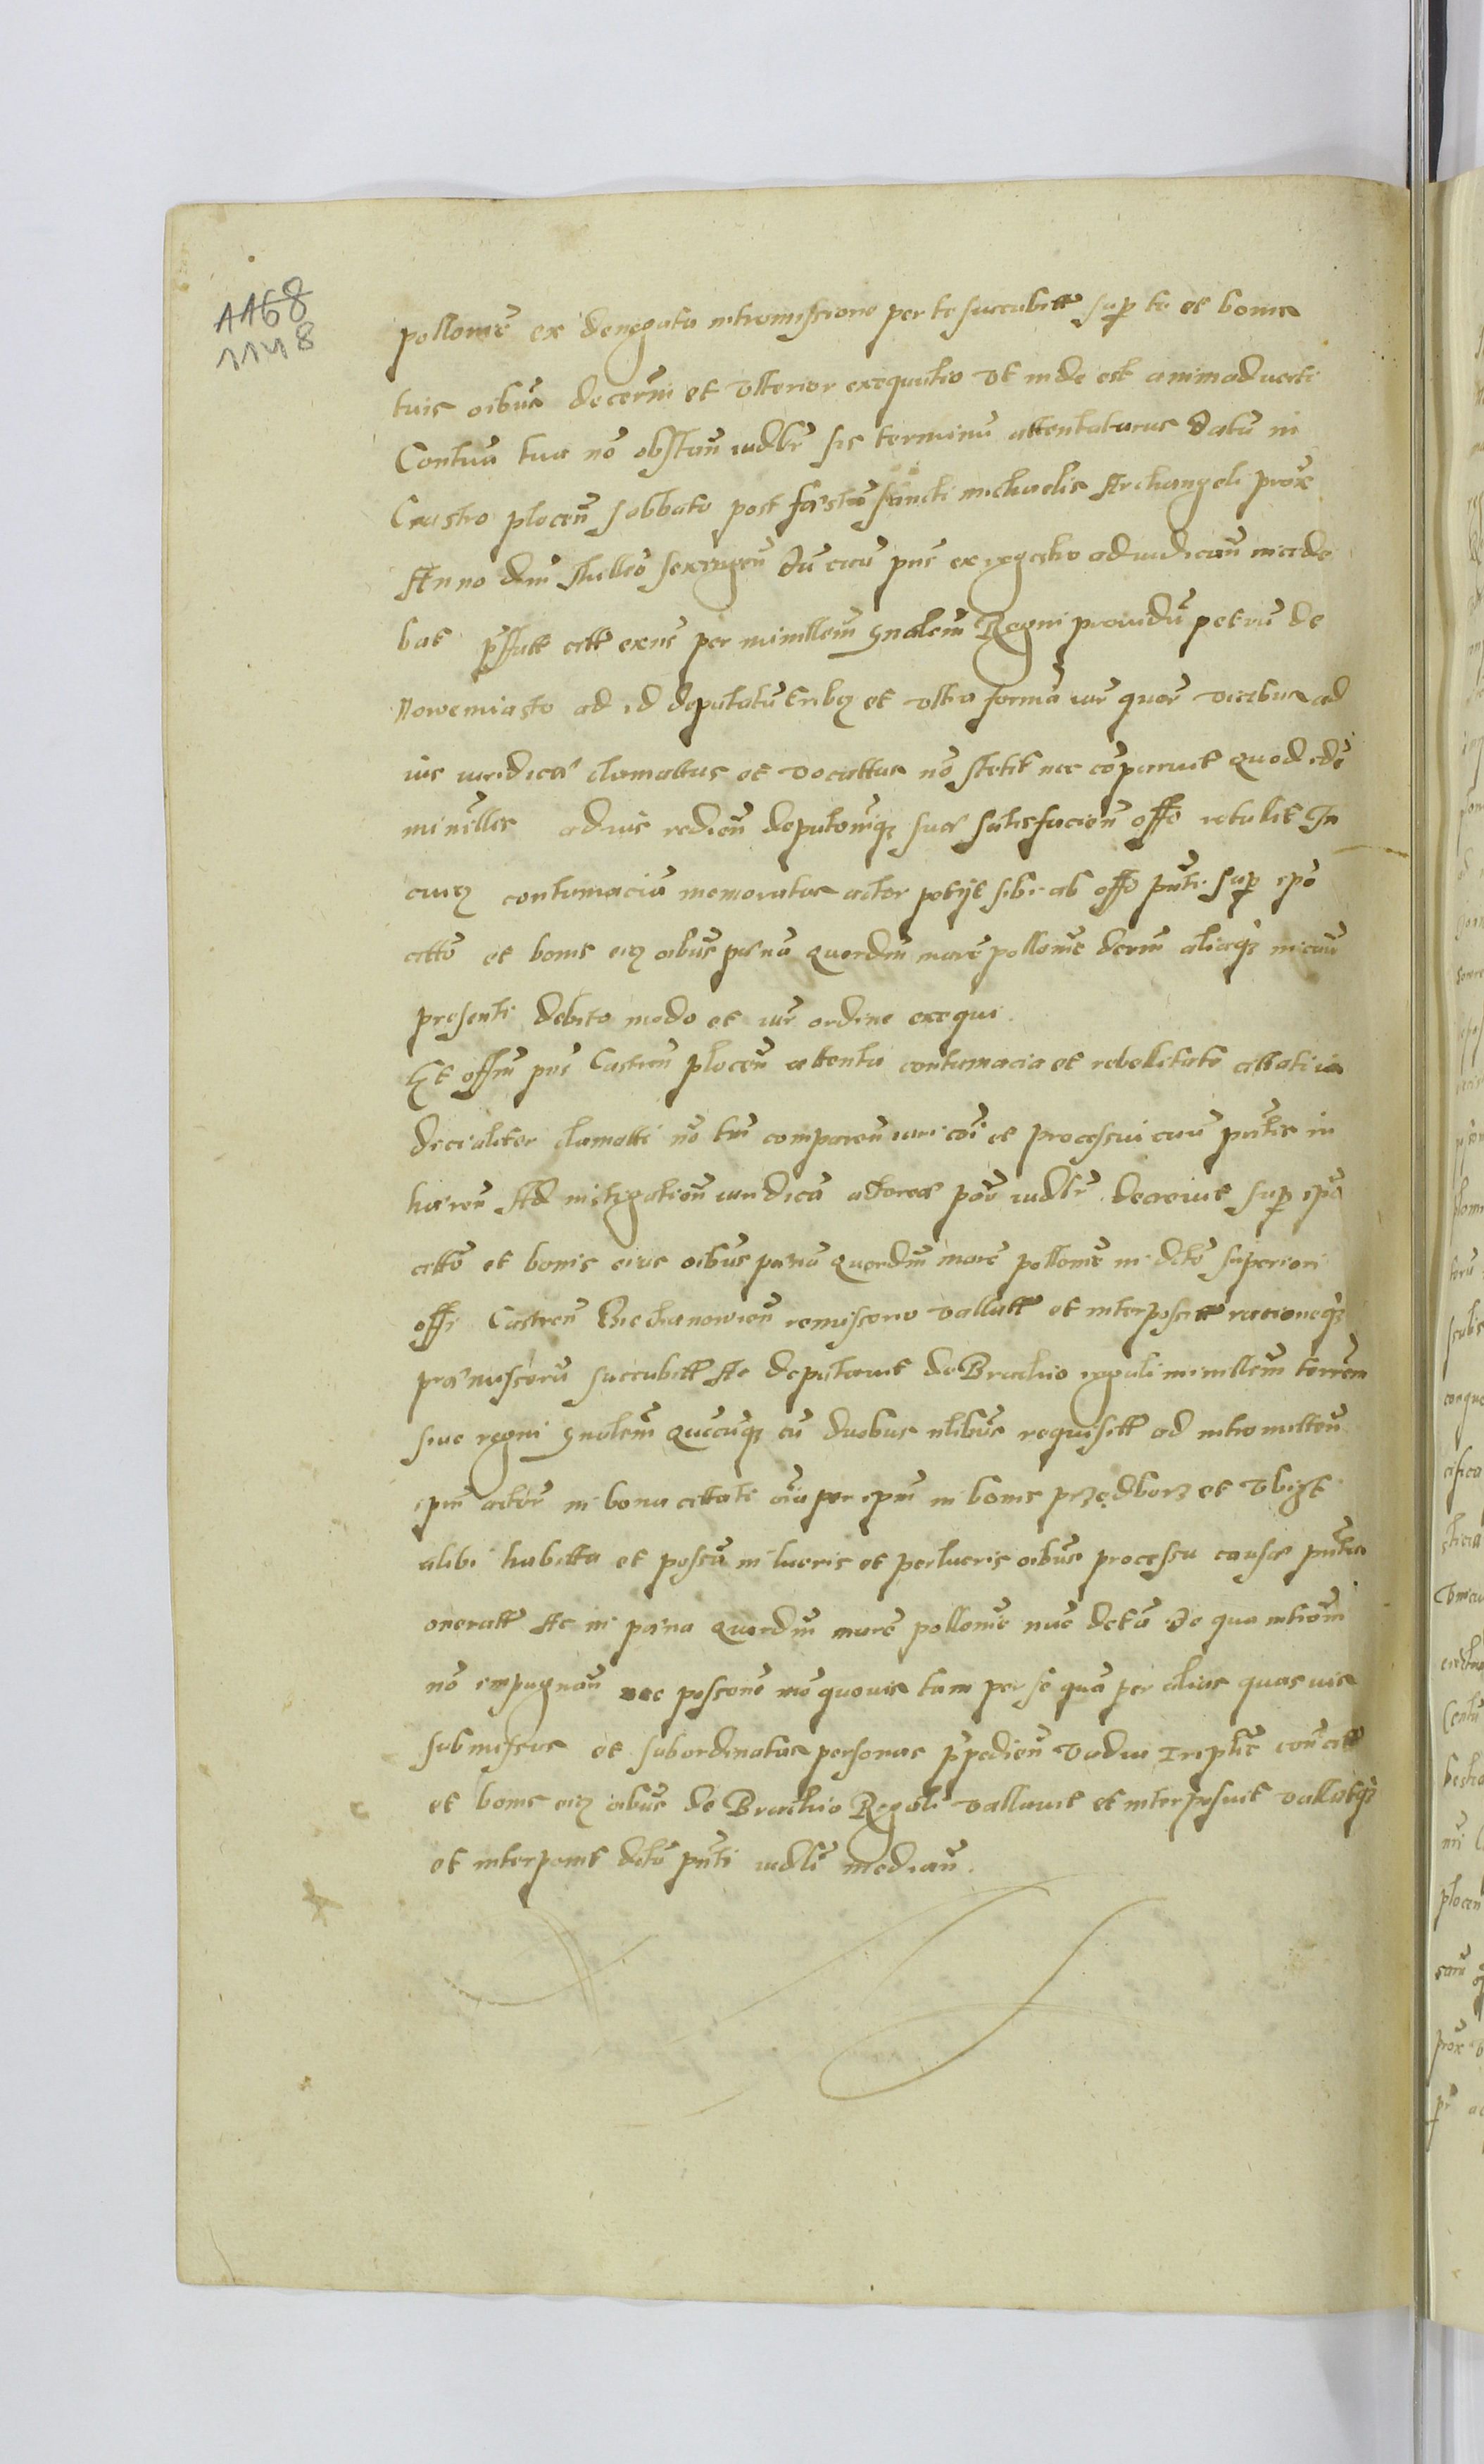 1168
1148
pollonie ex denegata intromissione per te succubitt sup te et bonis
tuis oibus decerni et ulterior exequutio ut inde est animadverti
Contua tua no obstan iudlr sis terminu attentaturus Datu in
Castro plocen sabbato post festu sancti michaelis Archangeli prox
Anno dni Millio sexcengen Du caū pns ex regestro adiudicāu incide
bat pffatt citt exns per minrllem gnalem Regni providu petru de
Nowemiasto ad id deputatu tribz et ultra forma iur quor vicibus ad
ius iuridice clamattus et vocattus no stetit nec coparuit Quod ide
minrlles ad ius redien deputoniqz sue satisfacien offo retulit In
cuiz contumaciā memoratus actor petijt sibi ab offo pnti sup ipo
citto et bonis eiz oibus pena quordin marc pollonie decern aliaqz in cau
presenti debito modo et iur ordine exequi.
Et offm pns Castren plocen attenta contumacia et rebellitate cittati iu
dicialiter clamatti no tm comparen iuri coi et processui cau pntis in
heren Ad instigatioen iuridicā actoreā pou iudlr decrevit sup ipo
citto et bonis eius oibus pena quordin marc pollonie in dcto superiori
offi Castren Ciechanowien remissorio vallatt et interposit racioneqz
premissoru succubitt Ac deputavit de Brachio regali minrllem terrem
sive regni gnalem quecuqz cu duobus nlibus requisitt ad intromitten
ipm actor in bona cittati oia per ipm in bonis przedborz et ubiqz
alibi habitta et possa in lucris et perlucris oibus processu causae pntis
oneratt Ac in pena quordin marc pollonie nuc detā De qua intromi
no impugnan nec possone mo quovis tam per se qua per alias quasvis
submissas et subordinatas personas ppedien vadiu triplic coū citt
et bonis eiz oibus de Brachio Regali vallavit et interposuit vallatqz
et interponit dcto pnti iudli median.